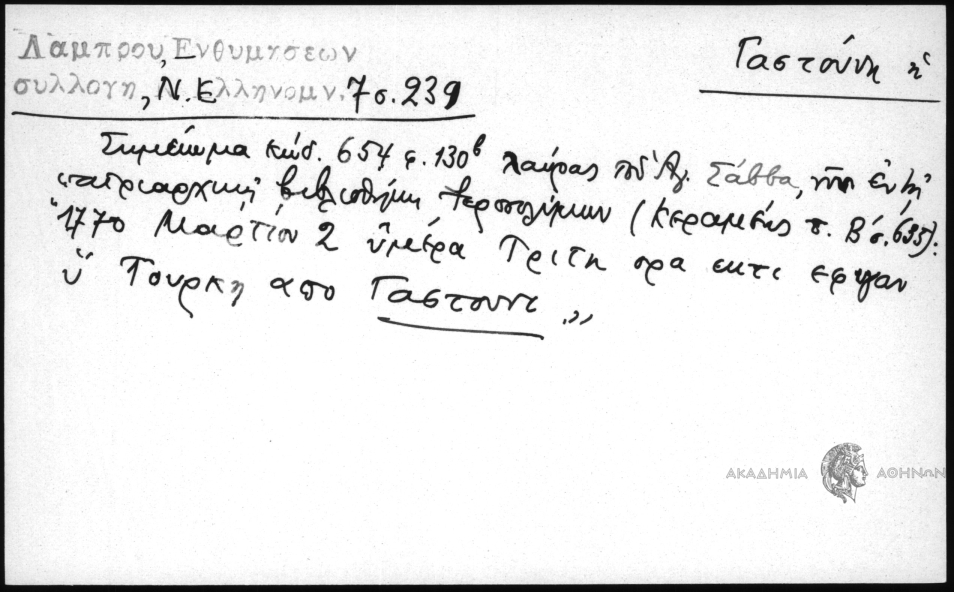 Λαμπρου, Ενθυμησεων
Γαστούνη ἡ
συλλογη, Ν. Ελληνομν. 7 σ. 239
Σημείωμα κώδ. 654 φ. 130β Λαύρας τοῦ Ἁγ. Σάββα, νῦν ἐν τῇ
πατριαρχικῇ βιβλιοθήκῃ Ἱεροσολύμων (Κεραμεύς τ. Β' σ. 635).
"1770 Μαρτίου 2 ὑμέρα Τρίτη ορα εκτι εφιγαν
ὑ Τουρκη απο Γαστουνι,,
ΑΚΑΔΗΜΙΑ ΑΘΗΝΩΝ